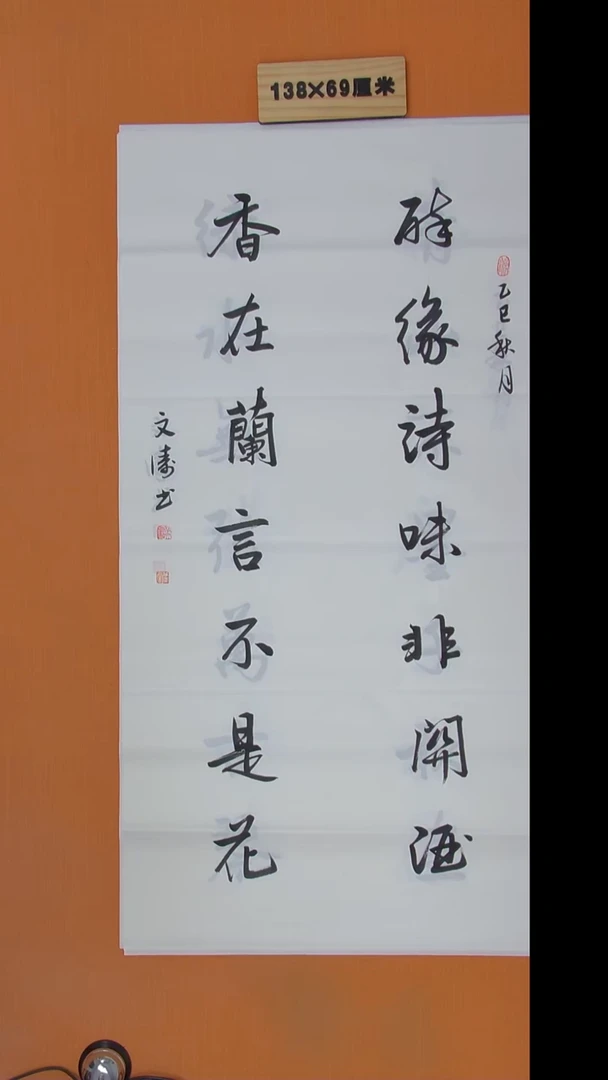 138×69厘米
乙巳秋月
醉缘詩味非開酒
香在蘭言不是花
文涛书